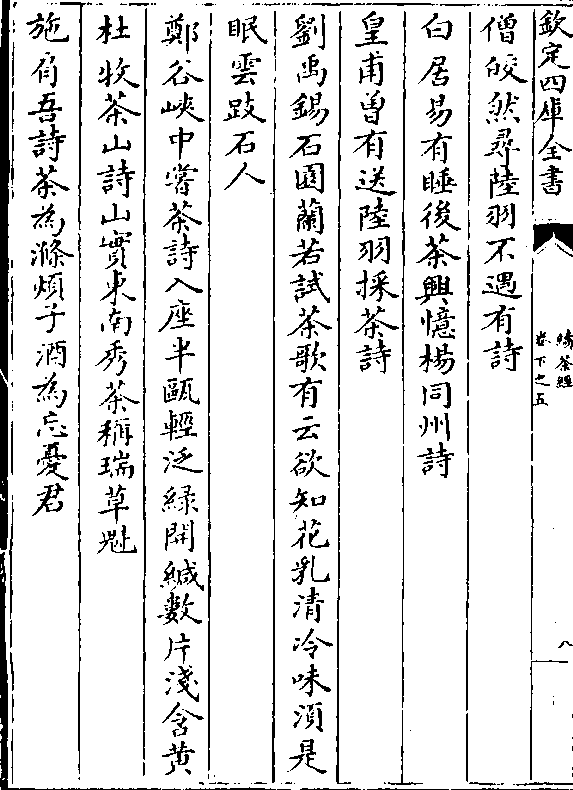 欽定四庫全書
續茶經
卷下之五
八
僧皎然尋陸羽不遇有詩
白居易有睡後茶興憶楊同州詩
皇甫曾有送陸羽採茶詩
劉禹錫石園蘭若試茶歌有云欲知花乳清冷味須是
眠雲跂石人
鄭谷峽中嘗茶詩入座半甌輕泛緑開緘數片淺含黄
杜牧茶山詩山實東南秀茶稱瑞草魁
施肩吾詩茶為滌煩子酒為忘憂君